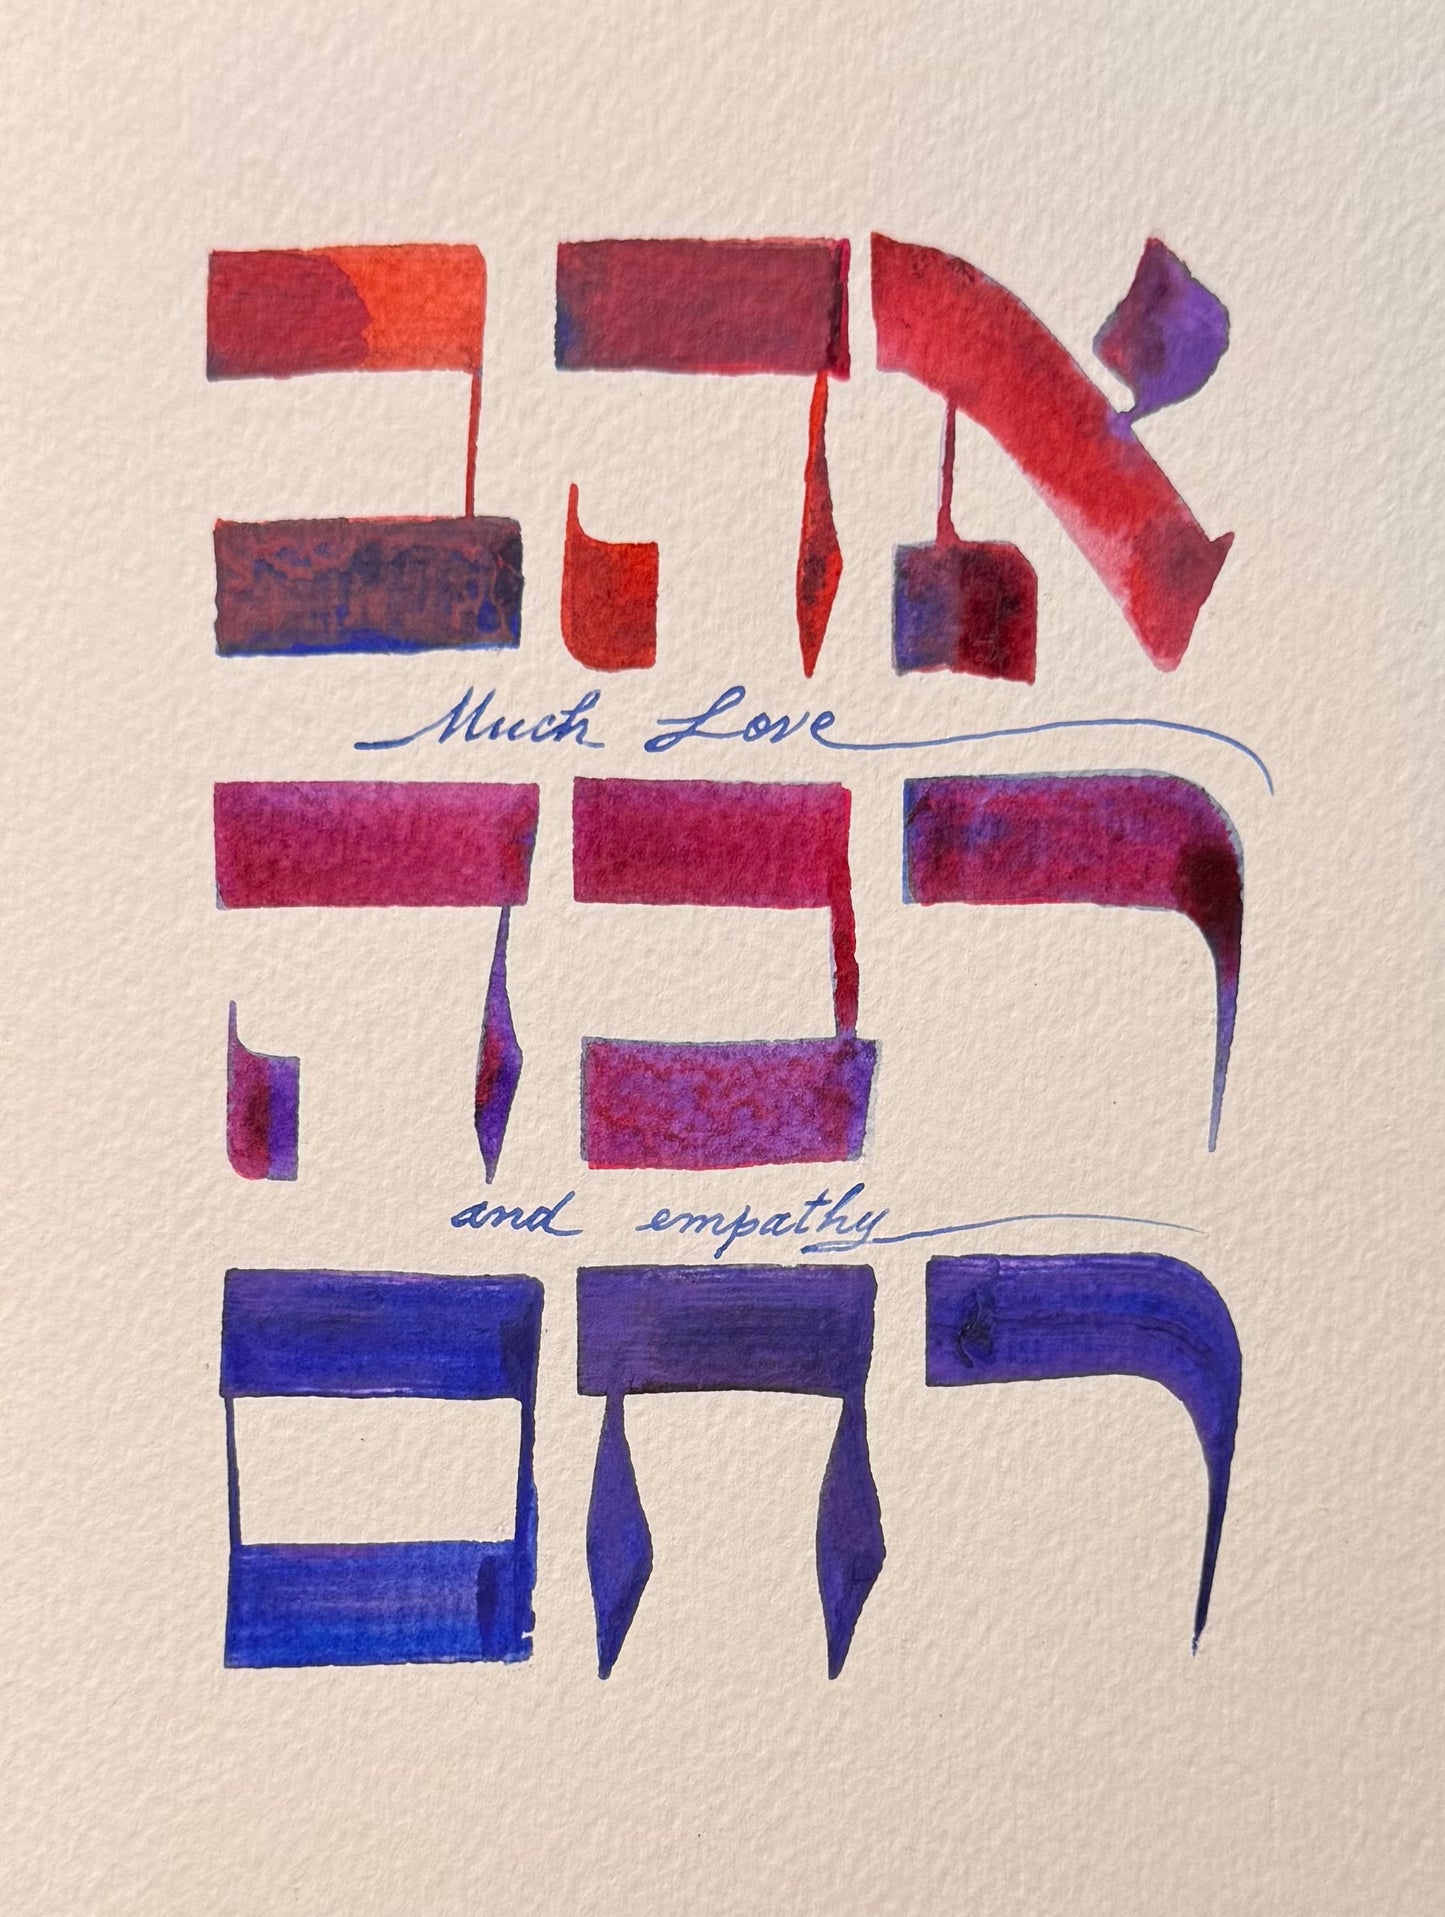 אהב
Much Love
רבה
and empathy
רחם